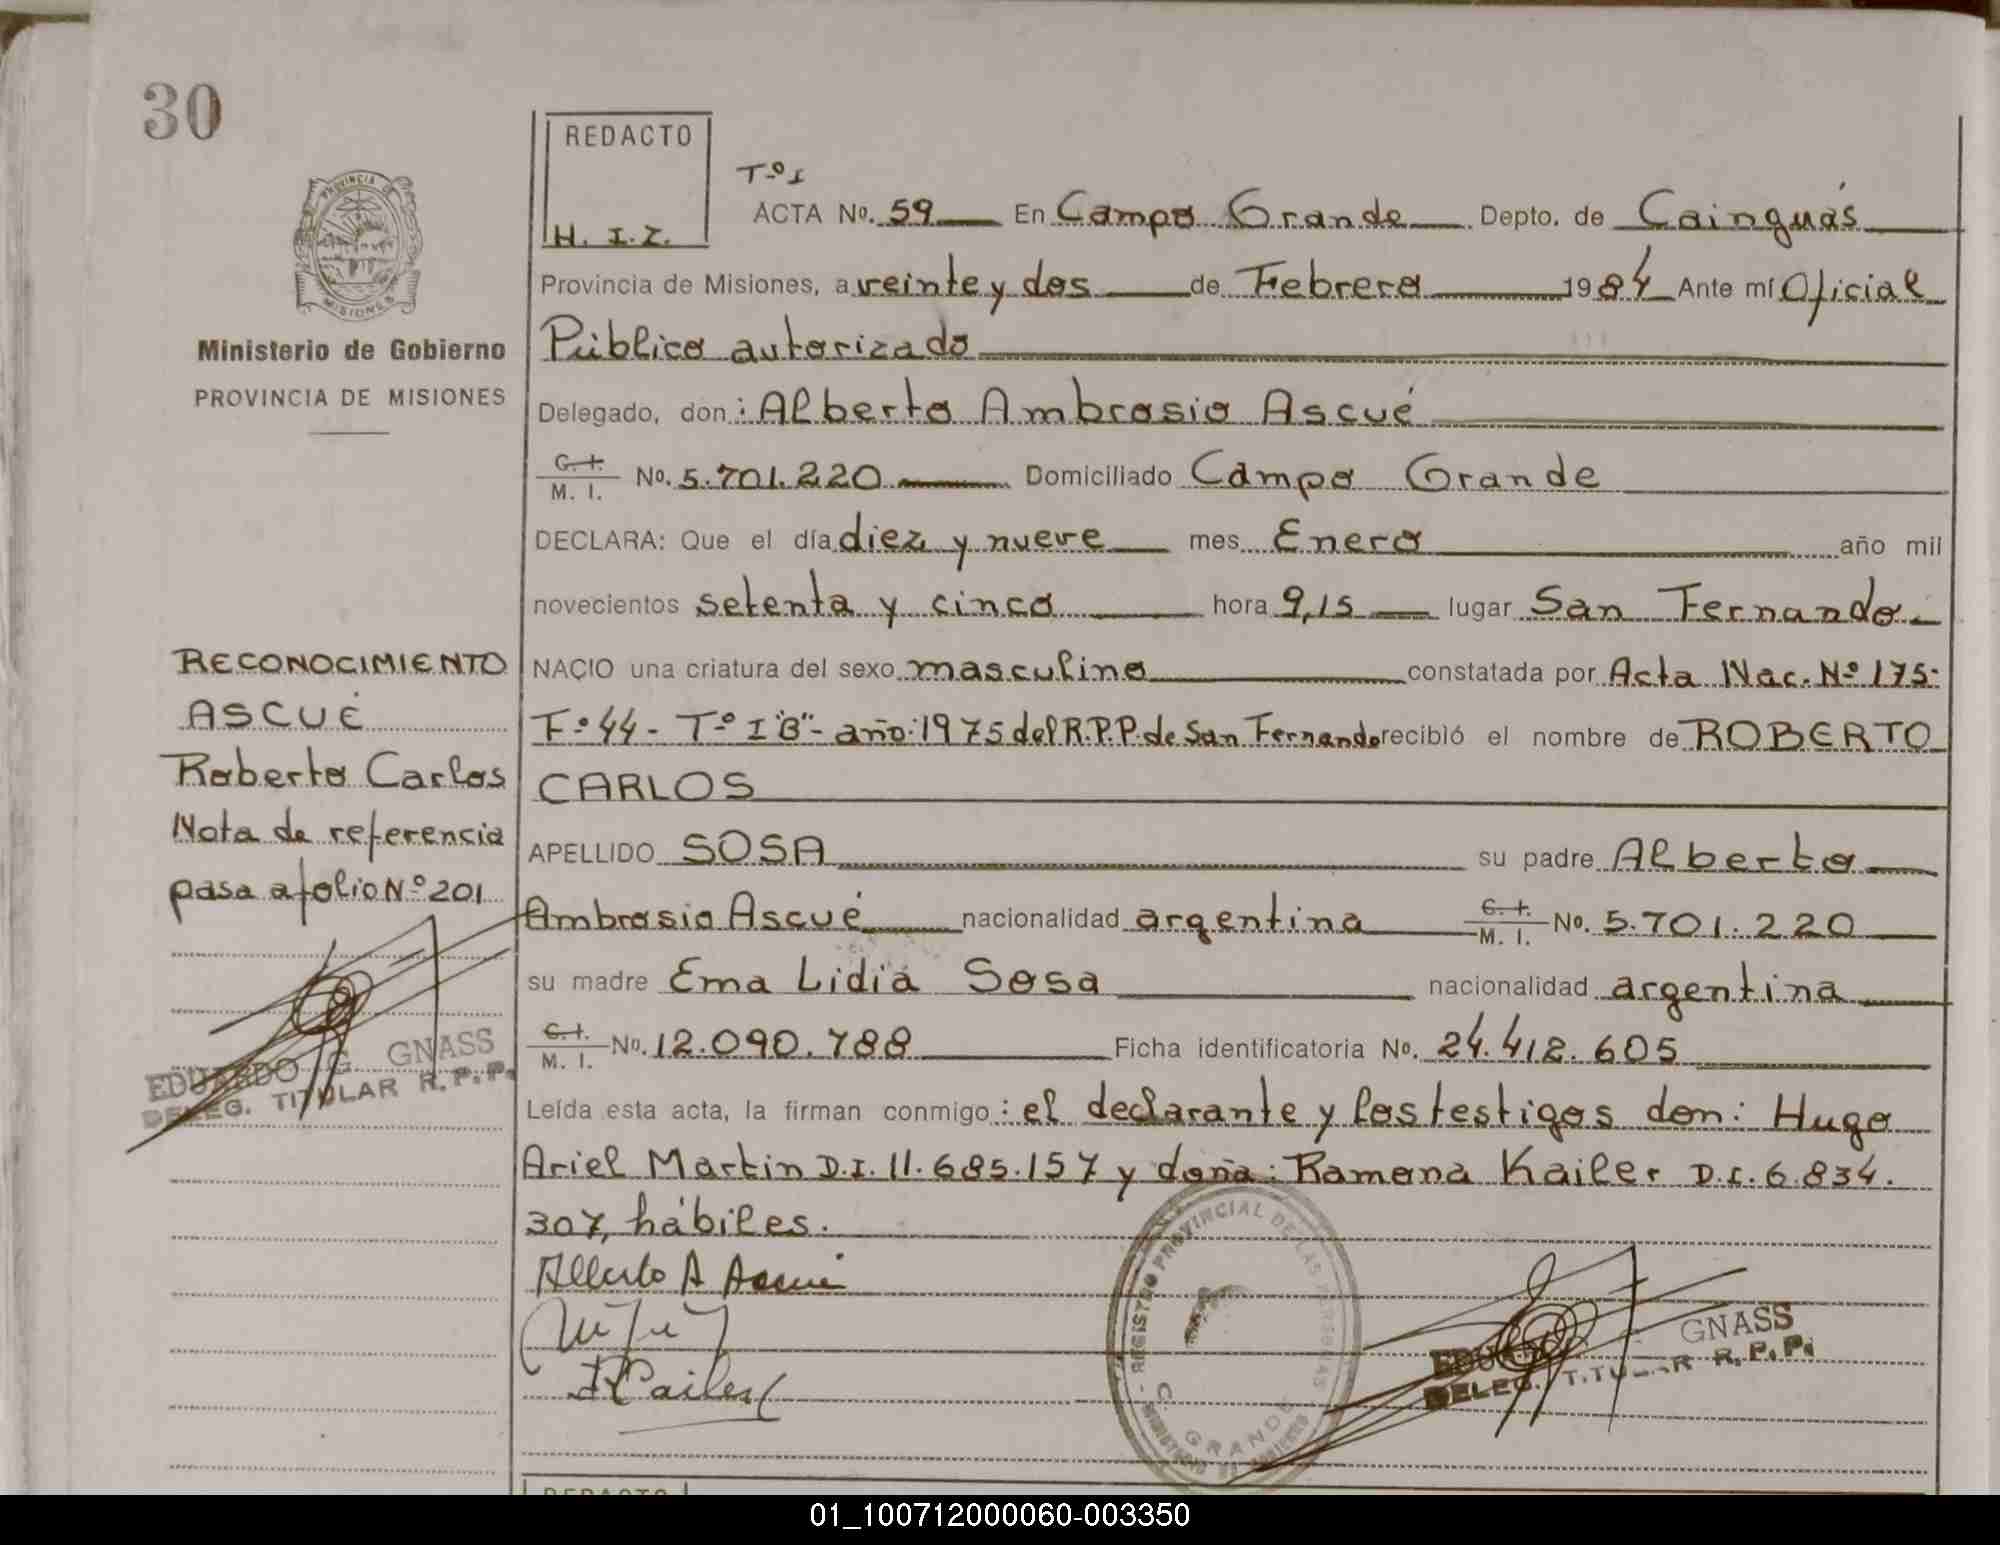 30
REDACTO
H. I. Z.
Tº I
ACTA Nº. 59 En Campo Grande Depto. de Cainguás
Provincia de Misiones, a veinte y dos de Febrero 1984 Ante mí Oficial
Público autorizado
Delegado, don: Alberto Ambrosio Ascué
C. I.
M. I. Nº. 5.701.220 Domiciliado Campo Grande
DECLARA: Que el día diez y nueve mes Enero año mil
novecientos setenta y cinco hora 9,15 lugar San Fernando
NACIO una criatura del sexo masculino constatada por Acta Nac. Nº 175-
Fº 44 - Tº I "B" - año: 1975 del R.P.P. de San Fernando recibió el nombre de ROBERTO
CARLOS
APELLIDO SOSA su padre Alberto
Ambrosio Ascué nacionalidad argentina C. I. M. I. Nº. 5.701.220
su madre Ema Lidia Sosa nacionalidad argentina
C. I.
M. I. Nº. 12.090.788 Ficha identificatoria Nº. 24.412.605
Leída esta acta, la firman conmigo: el declarante y los testigos don: Hugo
Ariel Martin D.I. 11.685.157 y doña: Ramona Kailer D.I. 6.834.
307, hábiles.
Alberto A Ascué
RKailer
REGISTRO PROVINCIAL DE LAS PERSONAS
C. GRANDE
MINISTERIO DE GOBIERNO
GNASS
DELEG. TITULAR R.P.P.
PROVINCIA DE
MISIONES
Ministerio de Gobierno
PROVINCIA DE MISIONES
RECONOCIMIENTO
ASCUÉ
Roberto Carlos
Nota de referencia
pasa a folio Nº 201
EDUARDO G. GNASS
DELEG. TITULAR R.P.P.
REDACTO
01_100712000060-003350